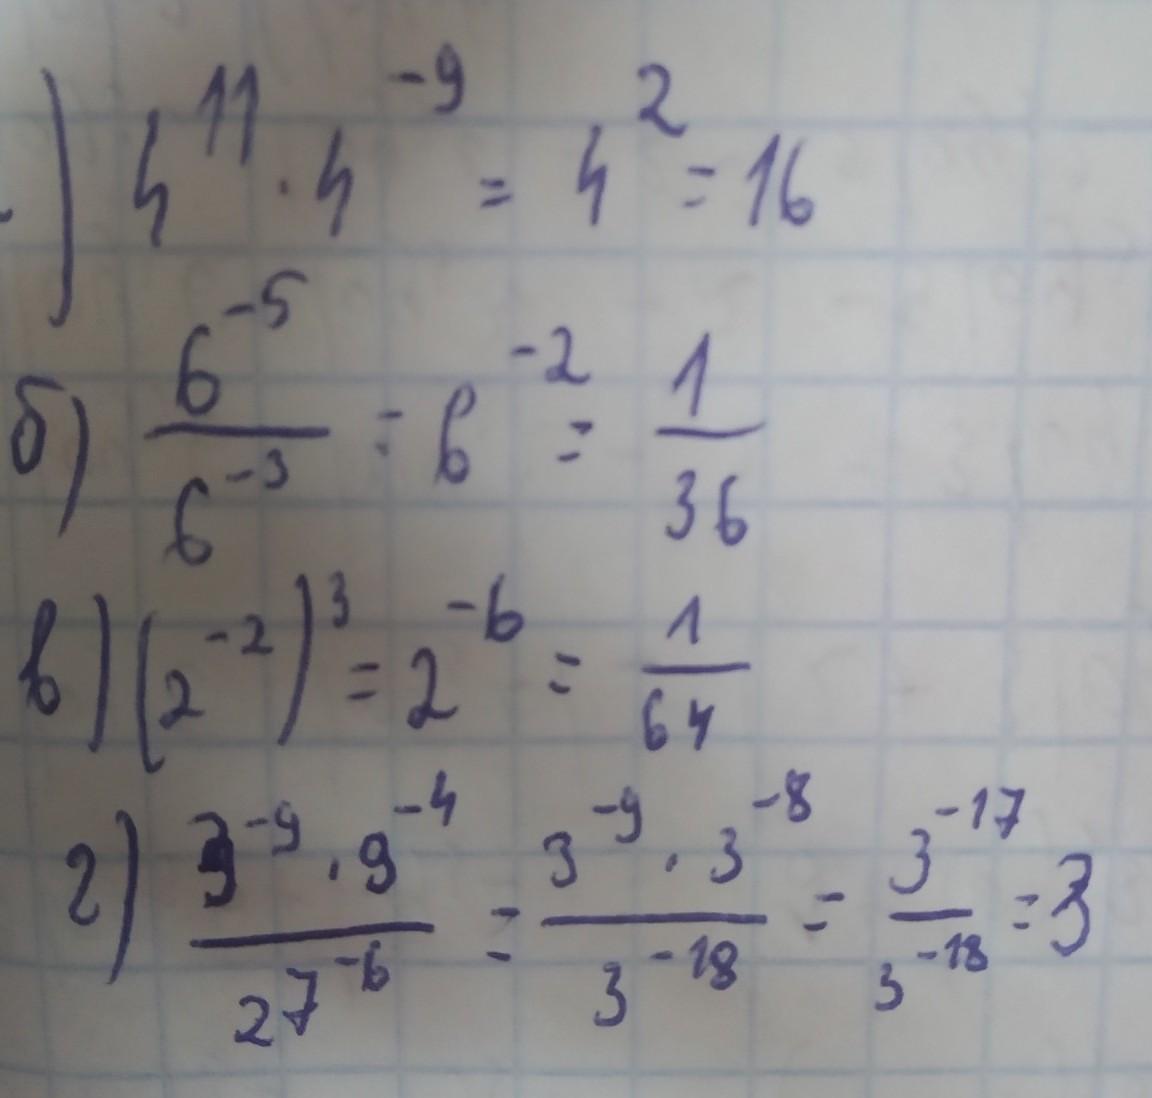 ) 4¹¹ · 4⁻⁹ = 4² = 16
б) 6⁻⁵/6⁻³ = 6⁻² = 1/36
в) (2⁻²)³ = 2⁻⁶ = 1/64
г) 3⁻⁹ · 9⁻⁴/27⁻⁶ = 3⁻⁹ · 3⁻⁸/3⁻¹⁸ = 3⁻¹⁷/3⁻¹⁸ = 3